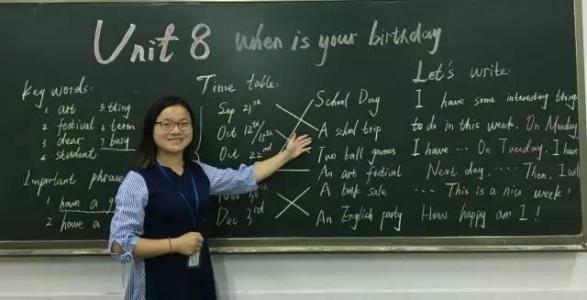 Unit 8 when is your birthday
Key words:
1 art 5 thing
2 festival 6 term
3 dear 7 busy
4 student
Important phrase
1 have a g
2 have a
Time table:
Sep 21st
Oct 12th/13th
Oct 22nd
Nov 30th
Dec 3rd
School Day
A school trip
Two ball games
An art festival
A book sale
An English party
Let's write
I have some interesting things
to do in this week. On Monday
I have ... On Tuesday. I have
Next day. ..... Then, I wi
... This is a nice week!
How happy am I!